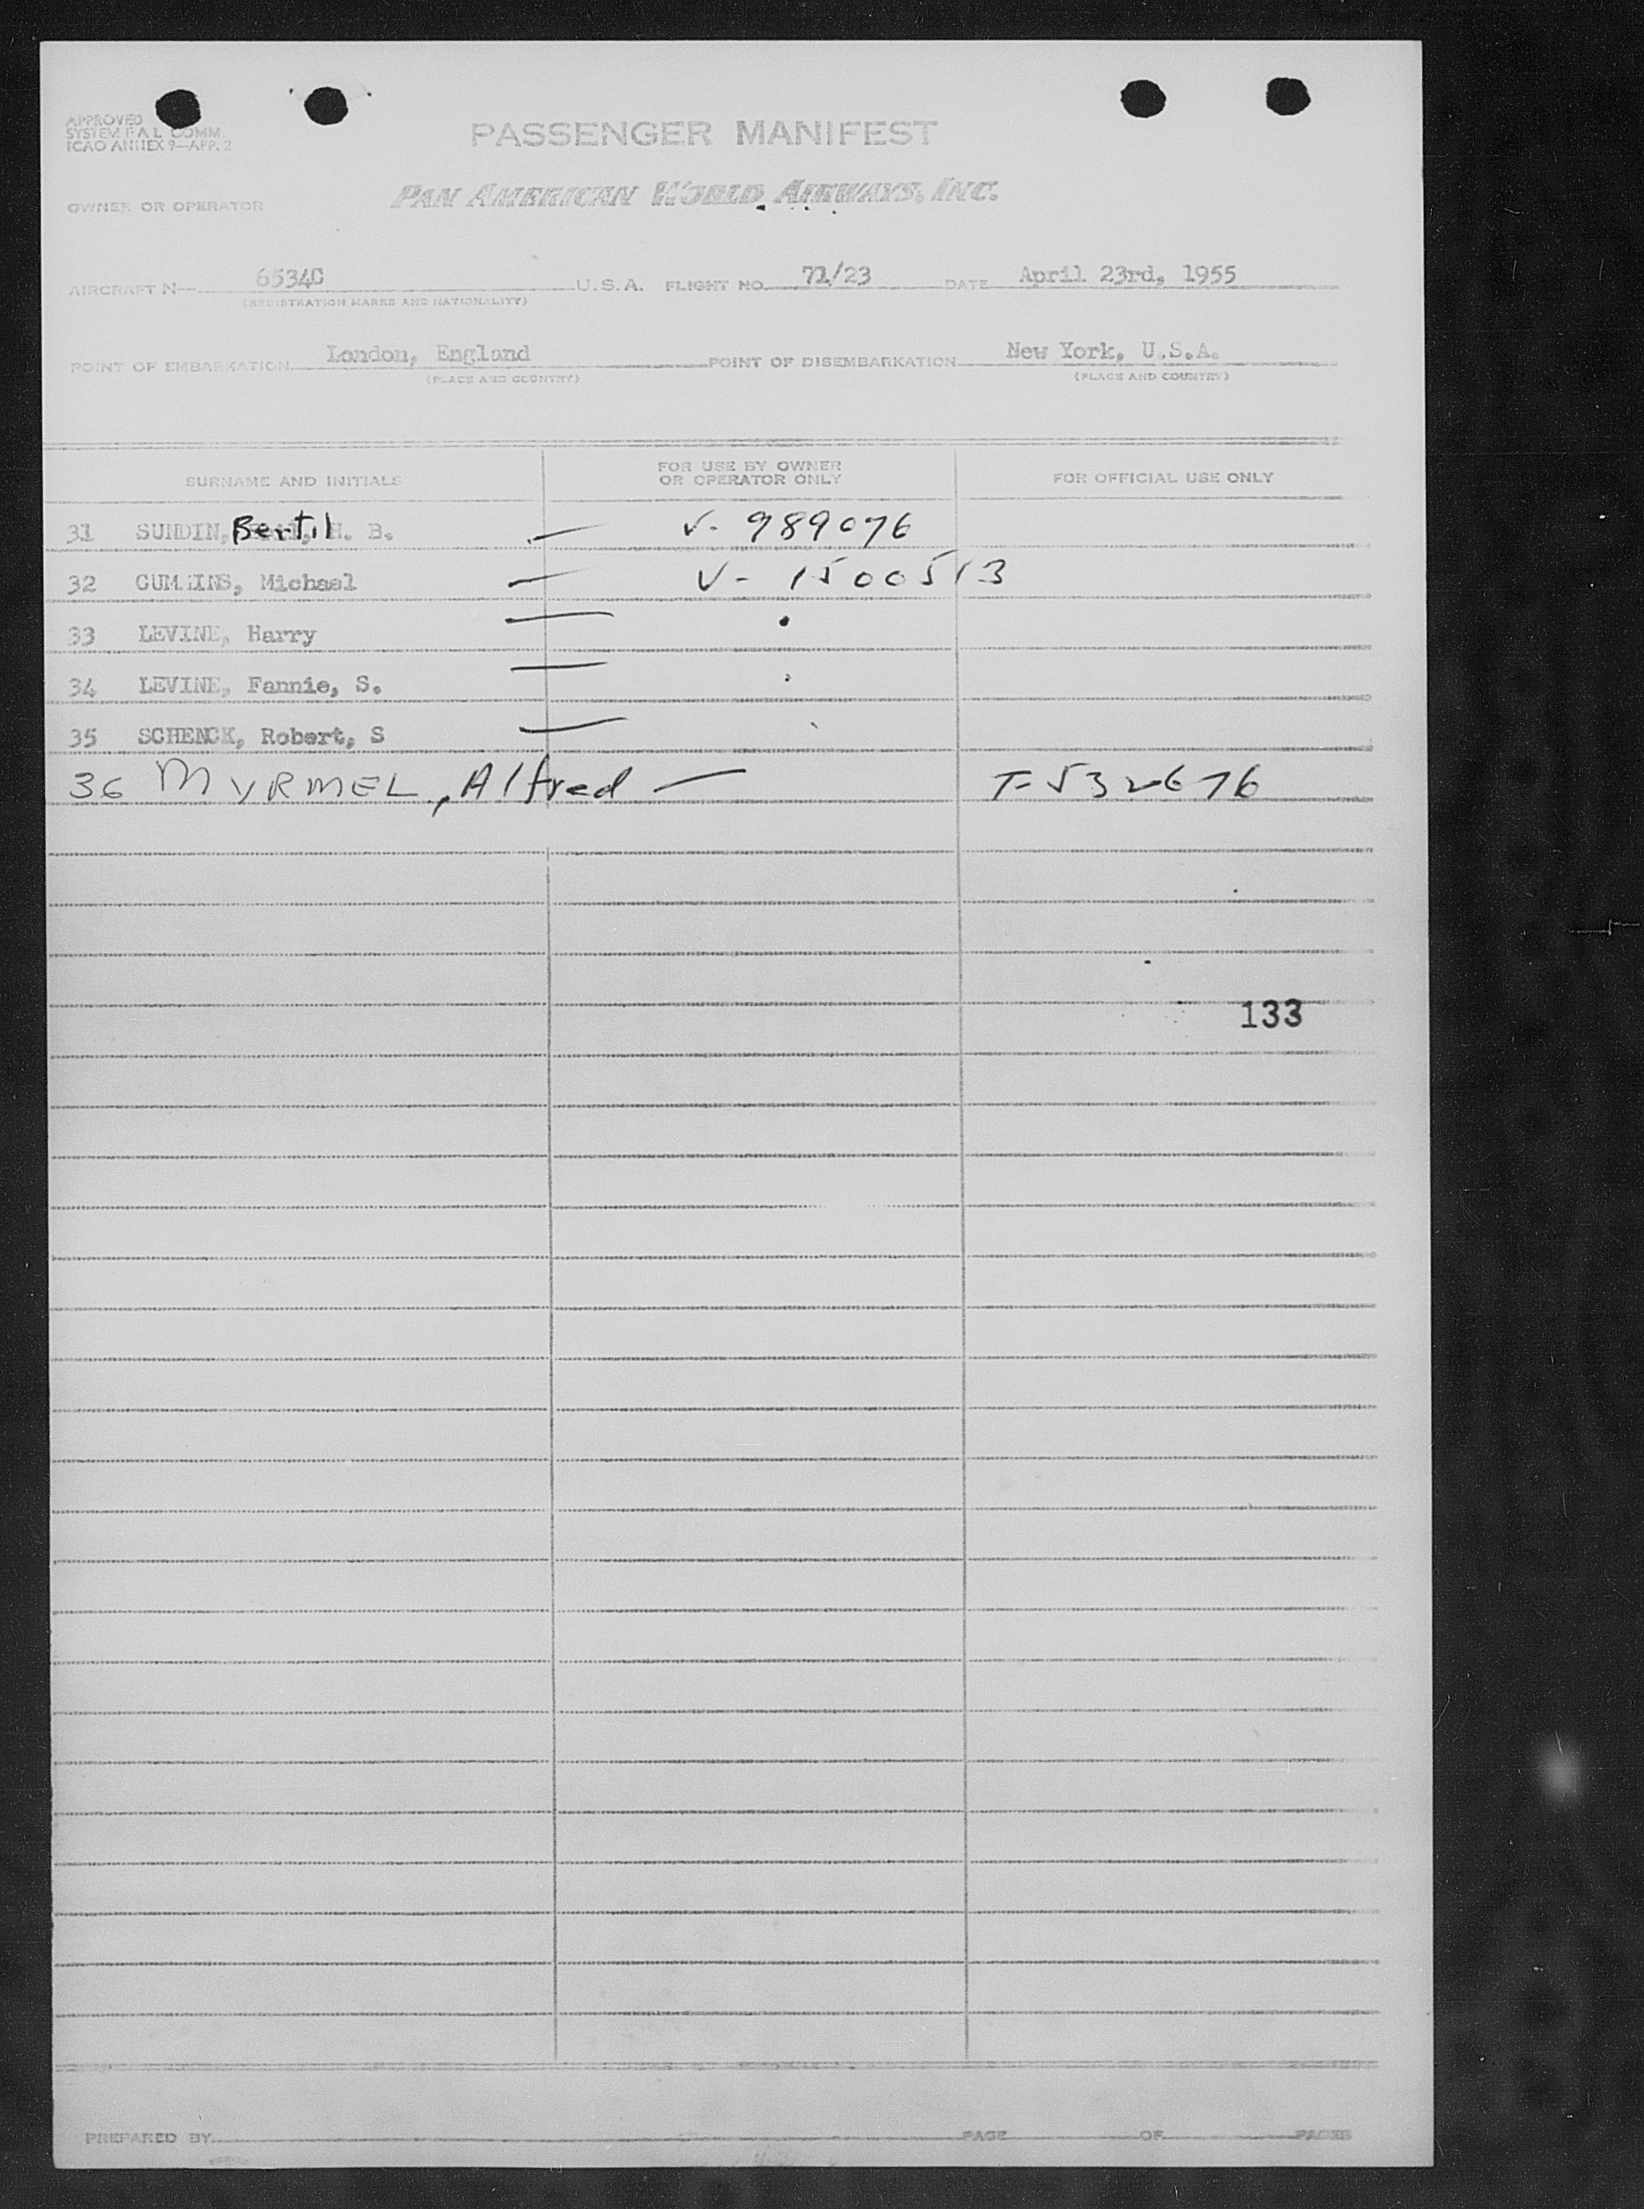 APPROVED
SYSTEM F A L COMM.
ICAO ANNEX 9—APP. 2
PASSENGER MANIFEST
OWNER OR OPERATOR PAN AMERICAN WORLD AIRWAYS, INC.
AIRCRAFT N— 6534C U.S.A. FLIGHT NO. 71/23 DATE April 23rd, 1955
(REGISTRATION MARKS AND NATIONALITY)
POINT OF EMBARKATION London, England POINT OF DISEMBARKATION New York, U.S.A.
(PLACE AND COUNTRY) (PLACE AND COUNTRY)
SURNAME AND INITIALS FOR USE BY OWNER OR OPERATOR ONLY FOR OFFICIAL USE ONLY
31 SUNDIN, Bertil H. B. — V- 989076
32 CUMMINS, Michael — V- 1500513
33 LEVINE, Harry —
34 LEVINE, Fannie, S. —
35 SCHENCK, Robert, S —
36 MYRMEL, Alfred — T-532676
133
PREPARED BY PAGE OF PAGES